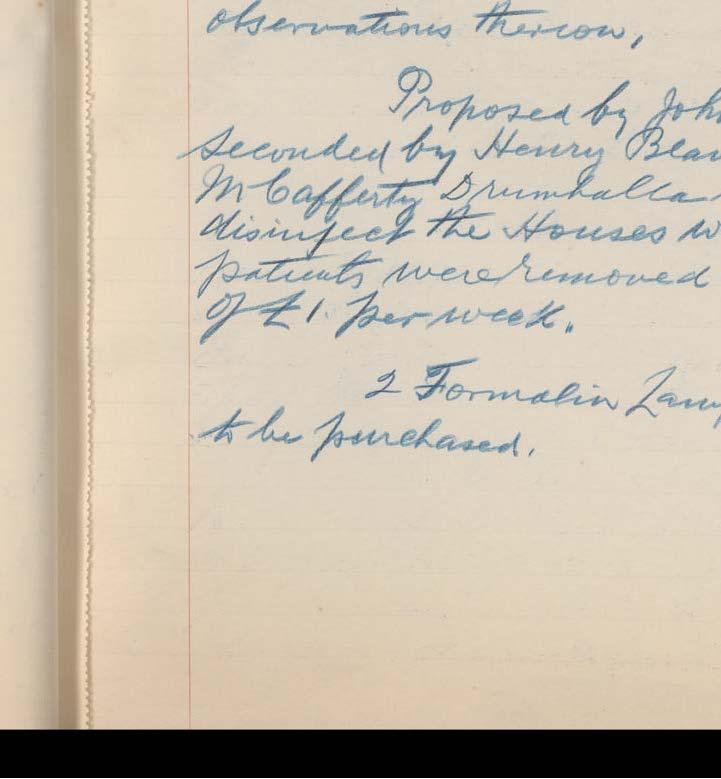 observations thereon,
Proposed by Joh
Seconded by Henry Bla
McCafferty Drumhalla
disinfect the Houses w
patients were removed
of £1. per week.
2 Formalin Lam
to be purchased.